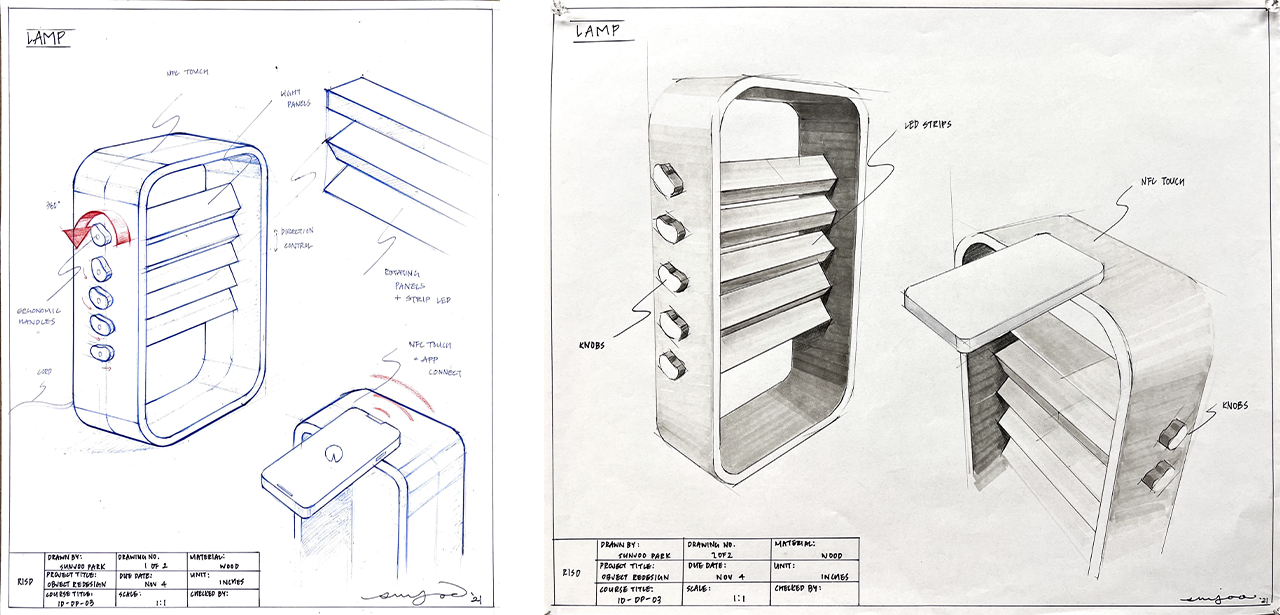 LAMP
NFC TOUCH
LIGHT
PANELS
360°
DIRECTION
CONTROL
ROTATING
PANELS
+ STRIP LED
ERGONOMIC
HANDLES
CORD
NFC TOUCH
+ APP
CONNECT
RISD
DRAWN BY:
SUNWOO PARK
DRAWING NO.
1 OF 2
MATERIAL:
WOOD
PROJECT TITLE:
OBJECT REDESIGN
DUE DATE:
NOV 4
UNIT:
INCHES
COURSE TITLE:
ID-DP-03
SCALE:
1:1
CHECKED BY:
'21
LAMP
LED STRIPS
NFC TOUCH
KNOBS
KNOBS
RISD
DRAWN BY:
SUNWOO PARK
DRAWING NO.
2 OF 2
MATERIAL:
WOOD
PROJECT TITLE:
OBJECT REDESIGN
DUE DATE:
NOV 4
UNIT:
INCHES
COURSE TITLE:
ID-DP-03
SCALE:
1:1
CHECKED BY:
'21